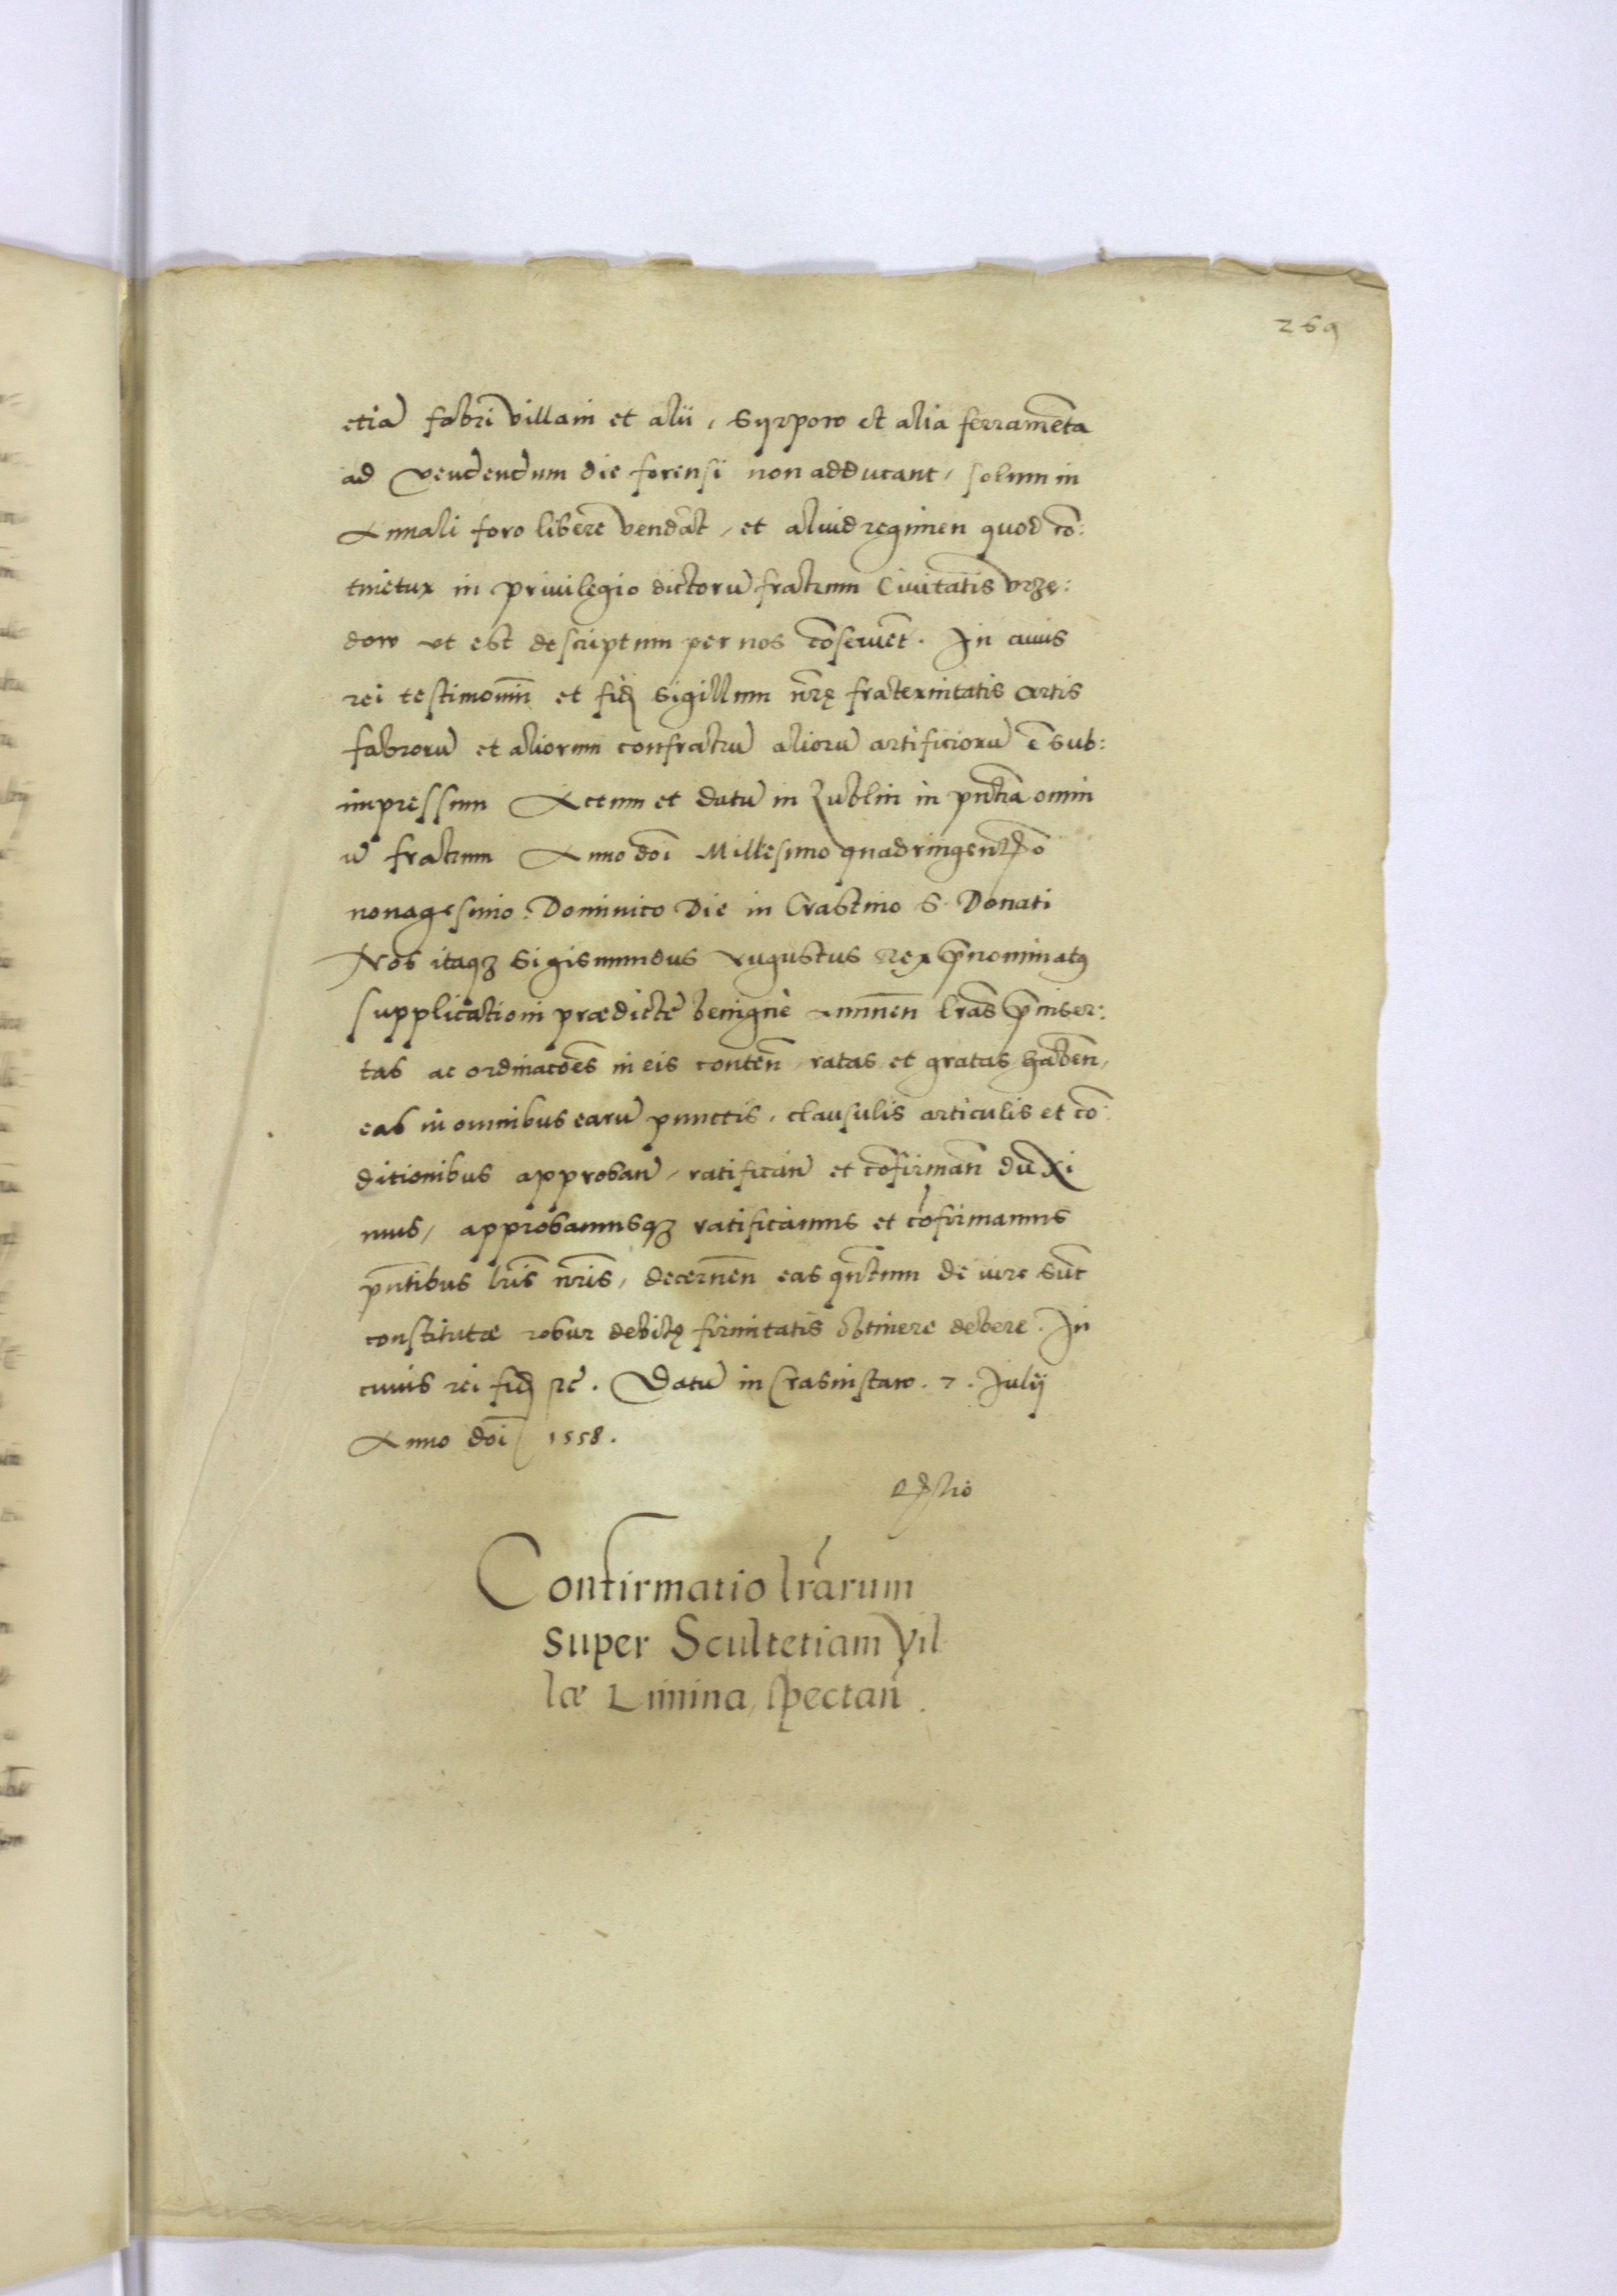 269
etiā fabri villani et alii, syrpow et alia ferramēta
ad vendendum die forensi non adducant, solum in
Annali foro libere vendāt, et aliud regimen quod cō:
tinetur in privilegio dictorū fratrum Civitatis Vrzę:
dow ut est descriptum per nos cōservēt. In cuius
rei testimoniū et fidē sigillum nr̄ę fraternitatis artis
fabrorū et aliorum confratrū aliorū artificiorū ē sub:
impressum Actum et datū in Lublin in pn̄tia omni
ū fratrum Anno doī Millesimo quadringentesō
nonagesimo. Dominico Die in Crastino S. Donati
Nos itaq3 Sigismundus Augustus Rex p̄nominatus
supplicationi prædictę benignè annuen̄ lr̄as p̄inser:
tas ac ordinacōes in eis conten̄, ratas et gratas haben̄,
eas in omnibus earū punctis, clausulis articulis et cō
ditionibus approban̄, ratifican̄ et cōfirman̄ duxi
mus, approbamusq3 ratificamus et cōfirmamus
pn̄tibus lr̄is nr̄is, decernen̄ eas qn̄tum de iure sūt
constitutæ robur debitę firmitatis obtinere debere. In
cuius rei fidē etc. Datū in Crasnistaw. 7. Julij
Anno doī 1558.
Confirmatio lr̄arum
super Scultetiam Vil
læ Limina, spectan̄.